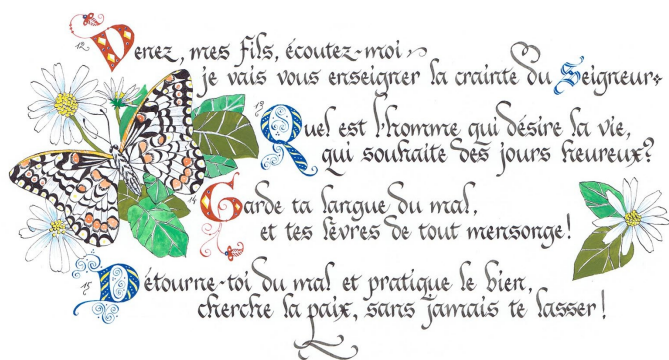 12 Venez, mes fils, écoutez-moi
je vais vous enseigner la crainte du Seigneur
13 Quel est l'homme qui désire la vie,
qui souhaite des jours heureux?
14 Garde ta langue du mal,
et tes lèvres de tout mensonge!
15 Détourne-toi du mal et pratique le bien,
cherche la paix, sans jamais te lasser!